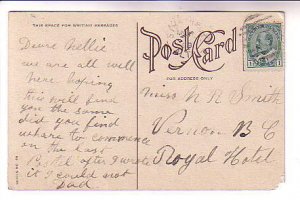 THIS SPACE FOR WRITING MESSAGES
Post Card
FOR ADDRESS ONLY
Deare Nellie
we are all well
here hoping
this will find
you the same
did you find
where to commence
on the last
after I wrote
it I could not
Dad
Miss N R Smith
Vernon B C
Royal Hotel